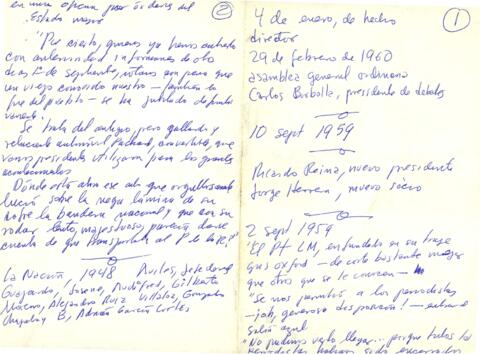 ②
en una oficina por órdenes del
Estado mayor
"Por cierto, quienes ya hemos
con anterioridad informaciones de otro
de septiembre, notamos que
un viejo conocido nuestro – también lo
fue del público – se ha jubilado
Se trata del antiguo, pero gallardo y
reluciente automóvil Packard, convertible, que
varios presidentes utilizaron para los grandes
acontecimientos
Dónde está ahora ese auto que orgullosamente
lució sobre la negra lámina de su
la bandera nacional y que con su
rodar lento, majestuoso, parecía darse
cuenta de que transportaba al P de la R."
La Nación, 1948
Guajardo, Gilberto
Moreno, Alejandro Ruiz Villaloz, Gonzalo
B, Adrián García Cortés
①
4 de enero, de hecho
director
29 de febrero de 1960
asamblea general ordinaria
Carlos Borbolla, presidente de debates
10 sept 1959
Ricardo Reina, nuevo presidente
Jorge Herrera, nuevo socio
2 sept 1959
"El Pt LM, enfundado en su traje
gris oxford – de corte bastante mejor
que otros que se le conocen –
"Se nos permitió a los periodistas
– ¡oh, generosa disposición! –
salón azul
"No pudimos verlo llegar... porque todos los
periodistas habían sido encerrados